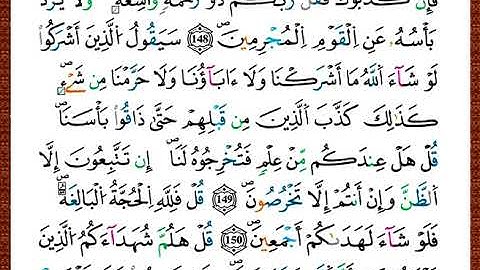 فَإِن كَذَّبُوكَ فَقُل رَّبُّكُمْ ذُو رَحْمَةٍ وَٰسِعَةٍ وَلَا يُرَدُّ
بَأْسُهُۥ عَنِ ٱلْقَوْمِ ٱلْمُجْرِمِينَ ۝١٤٨ سَيَقُولُ ٱلَّذِينَ أَشْرَكُوا۟
لَوْ شَآءَ ٱللَّهُ مَآ أَشْرَكْنَا وَلَآ ءَابَآؤُنَا وَلَا حَرَّمْنَا مِن شَىْءٍ
كَذَٰلِكَ كَذَّبَ ٱلَّذِينَ مِن قَبْلِهِمْ حَتَّىٰ ذَاقُوا۟ بَأْسَنَا
قُلْ هَلْ عِندَكُم مِّنْ عِلْمٍ فَتُخْرِجُوهُ لَنَآ إِن تَتَّبِعُونَ إِلَّا
ٱلظَّنَّ وَإِنْ أَنتُمْ إِلَّا تَخْرُصُونَ ۝١٤٩ قُلْ فَلِلَّهِ ٱلْحُجَّةُ ٱلْبَٰلِغَةُ
فَلَوْ شَآءَ لَهَدَىٰكُمْ أَجْمَعِينَ ۝١٥٠ قُلْ هَلُمَّ شُهَدَآءَكُمُ ٱلَّذِينَ